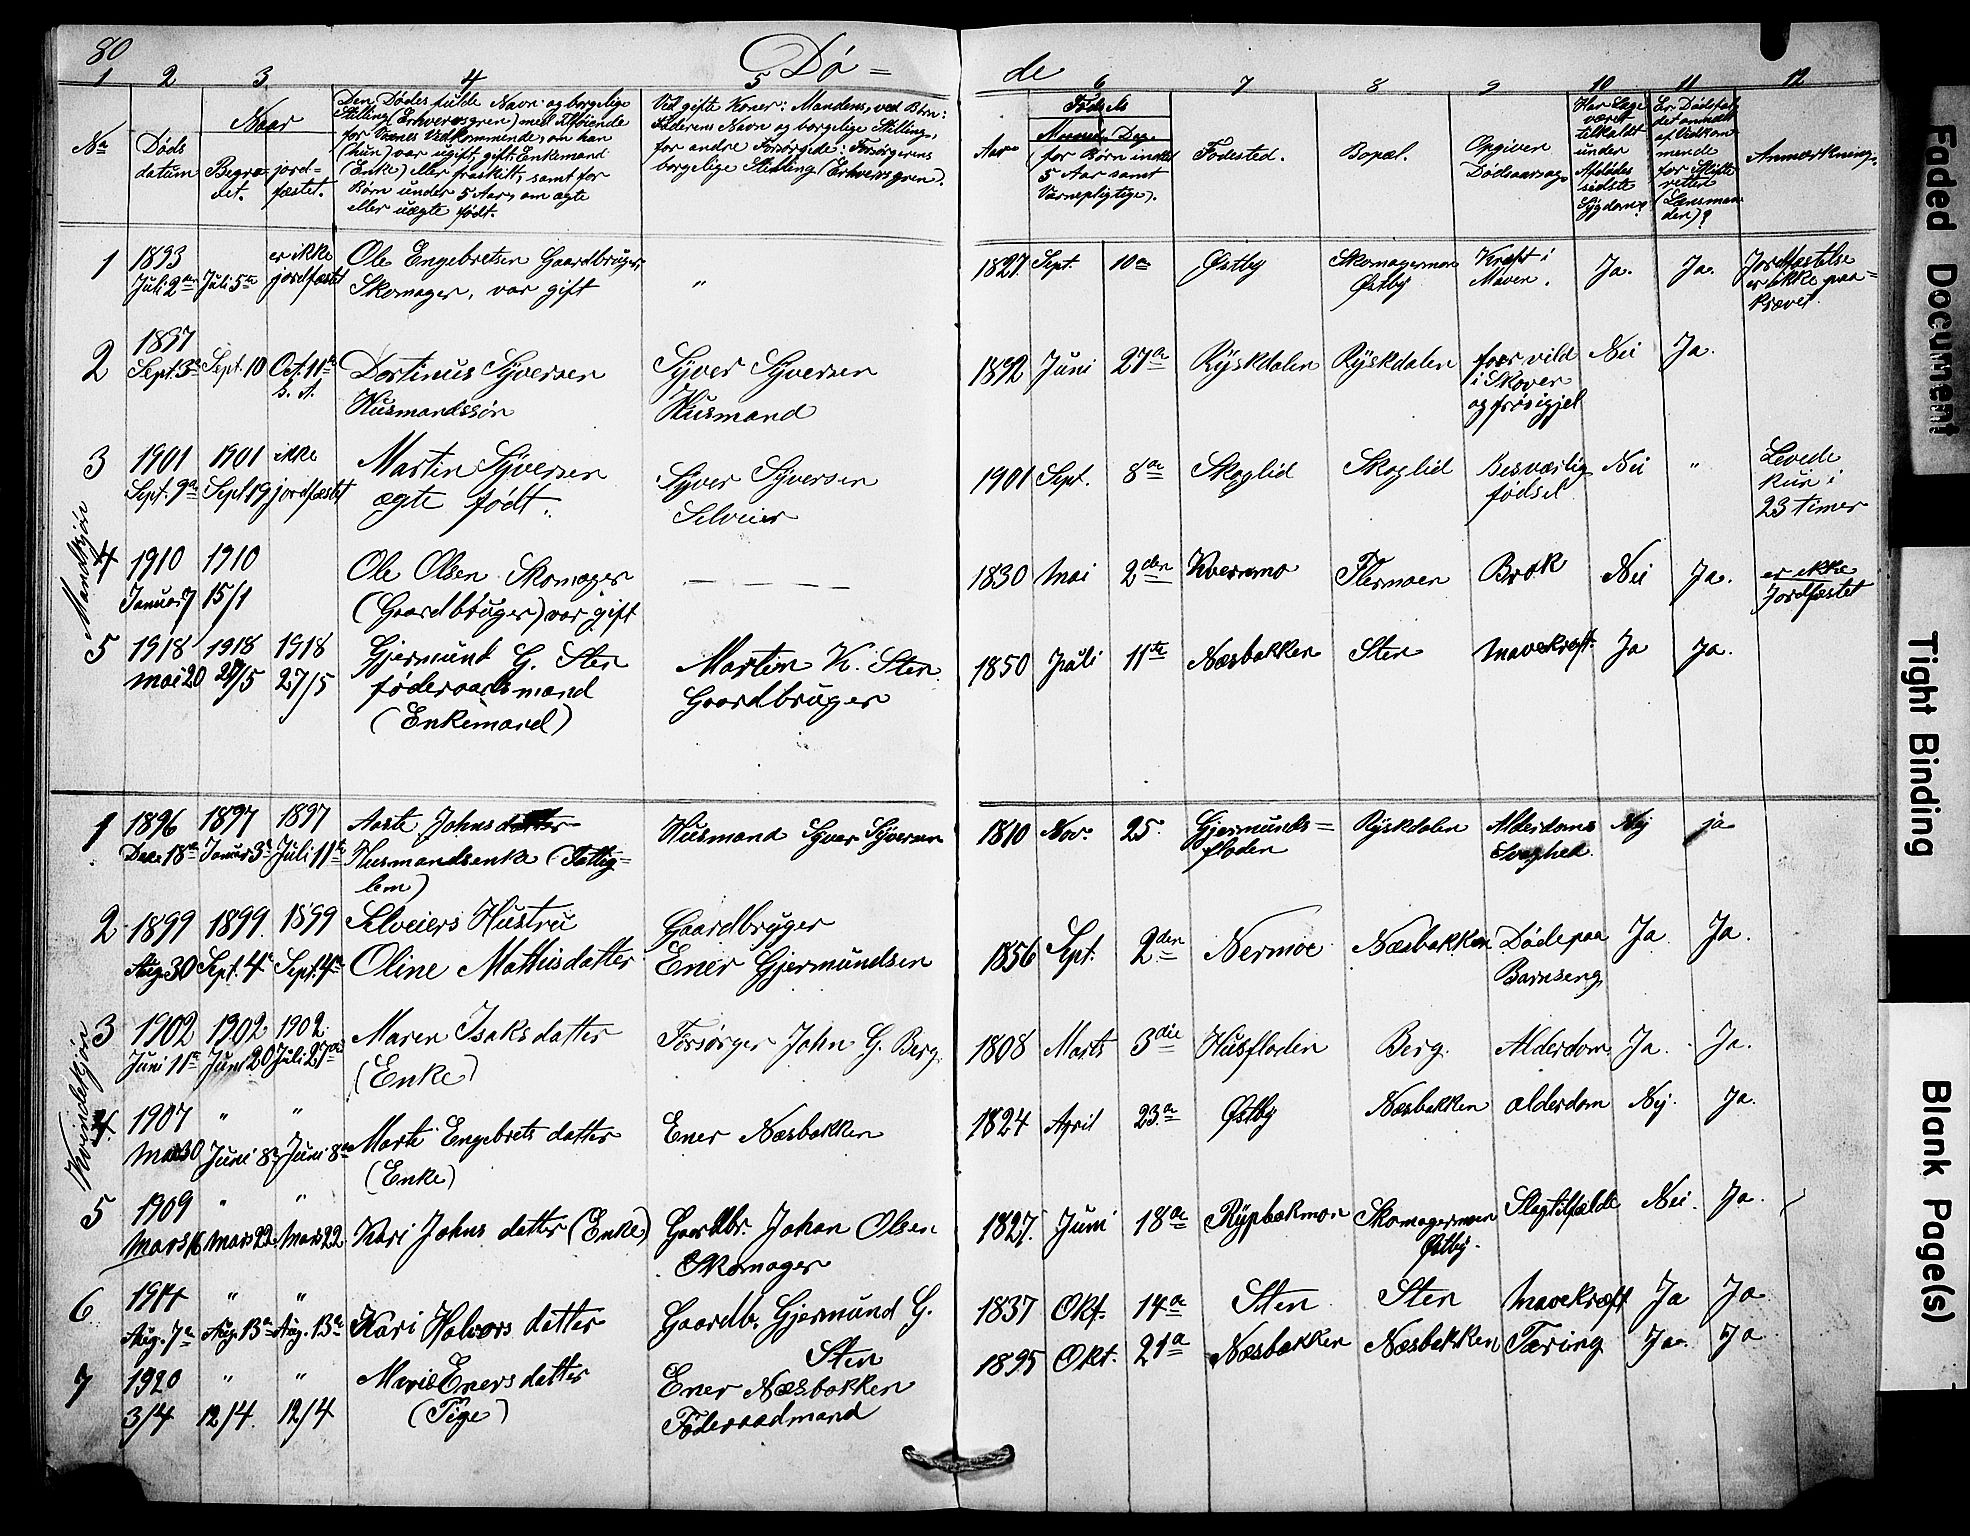 80
Dø =
de
1 2 3. 4 5 6 7 8 9 10 11 12
No
Døds
datum
Naar
Begra-
vet.
jord=
fæstet.
Den Dødes fulde Navn og borgelige
Stilling (Erhvervsgren) med Tilføiende
for Vexnes Vidkommende, om han
(hun) var ugift, gift, Enkemand
(Enke) eller fraskilt, samt for
Børn under 5 Aar, om ægte
eller uægte født.
Ved gifte Koner: Mandens, ved Børn:
Faderens Navn og borgelige Stilling,
for andre Forsørgede: Forsørgerens
borgelige Stilling (Erhvervsgren).
Føds els
Aar
Maaned, Dag.
(for Børn indtil
5 Aar samt
Værnepligtige).
Fødested.
Bopæl.
Opgiven
Dødsaarsag
Har Læge
været
tilkaldt
under
Afdødes
sidste
Sygdom?
Er Dødsfal-
det anmeldt
af Vedkom-
mende
for Skifte
retten
(Lænsman
den)?
Anmærkning.
Mandkjøn
1 1893 er ikke Ole Engebretsen Gaardbruger,
Juli 2den Juli 5te jordfæstet Skomager, var gift "
1827 Sept. 10de Østby Skomagermoen Østby Kræft i Maven. Ja. Ja. Jordfæstelse
er ikke paa=
krævet.
2 1897
Sept. 3de Sept. 10 Oct. 11te Dortinus Syversen Syver Syversen
s. A. Husmandssøn Husmand
1892 Juni 27de Ryskdalen Ryskdalen foer vild Nei Ja.
i Skoven
og frøs ihjel
3 1901 1901 ikke Martin Syversen Syver Syversen
Sept. 9de Sept 19 jordfæstet ægte født. Selveier
1901 Sept. 8de Skoglid Skoglid Besværlig Nei " Levede
fødsel kun i
23 timer
4 1910 1910 Ole Olsen Skomager — — — —
Januar 7 15/1 (Gaardbruger) var gift
1830 Mai 2den Kvernmo Flermoen Brok Nei Ja. er ikke
Jordfæstet
5 1918 1918 1918 Gjermund G. Sten Martin K. Sten
mai 20 27/5 27/5 føderaadsmand Gaardbruger
(Enkemand)
1850 Juli 11te Næsbakken Sten Mavekræft. Ja Ja.
Kvindekjøn
1 1896 1897 1897 Aaste Johnsdatter Husmand Syver Syversen
Dec. 18de Januar 3de Juli 11te Husmandsenke (Fattig=
lem)
1810 Nov. 25. Gjermunds= Ryskdalen Alderdoms Nej ja
floden Svaghed.
2 1899 1899. 1899 Selveiers Hustru Gaardbruger
Aug 30 Sept. 4de Sept. 4de Oline Mathisdatter Ener Gjermundsen
1856 Sept. 2den Nermoe Næsbakken Døde paa Ja Ja.
Barnseng
3 1902 1902 1902 Maren Isaksdatter Forsørger John G. Berg.
Juni 11te Juni 20 Juli 27de (Enke)
1808 Marts 3die Husfloden Berg. Alderdom Ja. Ja.
4 1907 " "
Mai 30 Juni 8de Juni 8de Marte Engebretsdatter Ener Næsbakken
(Enke)
1824 April 23de Østby Næsbakken alderdom Nej. Ja.
5 1909 " "
Mars 16 Mars 22 Mars 22 Kari Johnsdatter (Enke) Gaardbr. Johan Olsen
Skomager
1827. Juni 18de Rypbakmon Skomagermoen Slagtilfælde Nei. Ja.
Østby.
6 1914 " "
Aug. 7de Aug. 13de Aug. 13de Kari Halvorsdatter Gaardb. Gjermund G.
Sten
1837 Okt. 14de Sten Sten Mavekræft Ja Ja
7 1920 " " Marie Enersdatter Ener Næsbakken
3/4 12/4. 12/4 (Pige) Føderaadmand
1895 Okt. 21de Næsbakken Næsbakken Tæring Ja. Ja
Faded Document
Tight Binding
Blank Page(s)